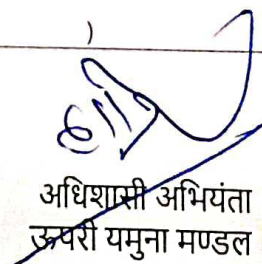 )
अधिशासी अभियंता
ऊपरी यमुना मण्डल